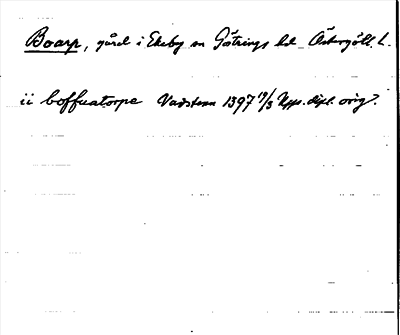 Boarp, gård i Ekeby sn Göstrings hd Östergötl. l.
ii boffuatorpe Vadstena 1397 19/3 Upps. dipl. orig?